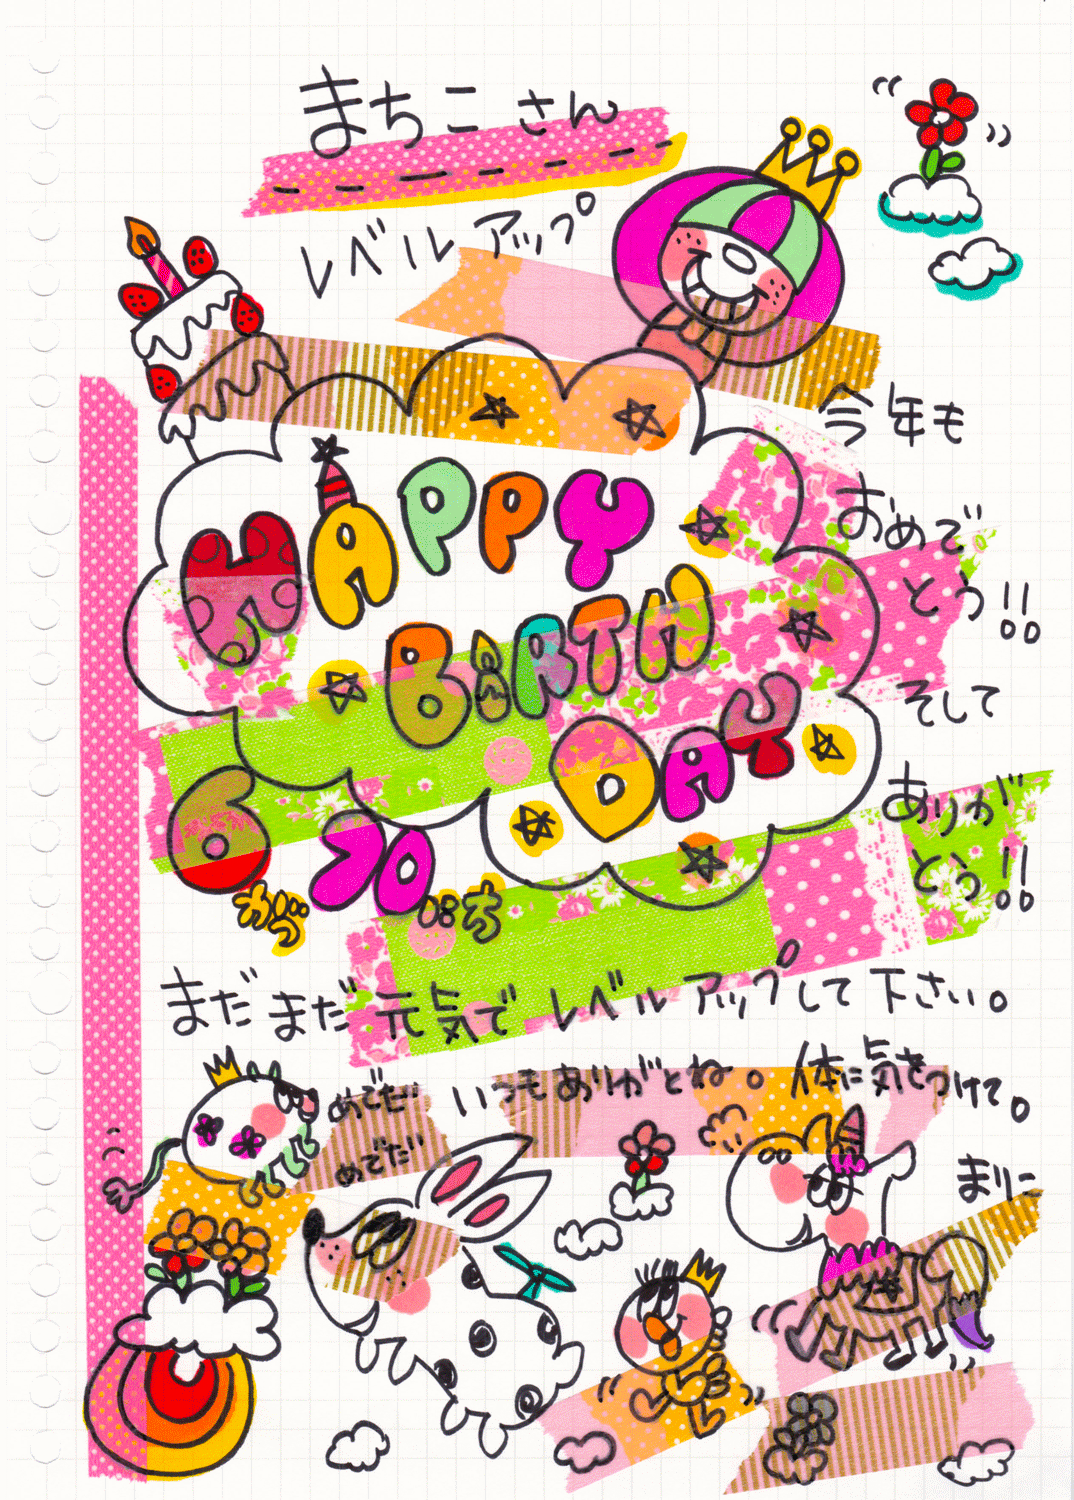 まちこ さん
レベル アップ
今年も
おめで
とう!!
HAPPY
BIRTH
DAY
そして
ありが
とう!!
6がつ 20にち
まだまだ 元気で レベルアップして下さい。
いつもありがとね。体に気をつけて。
めでだ
めでだ
まりこ